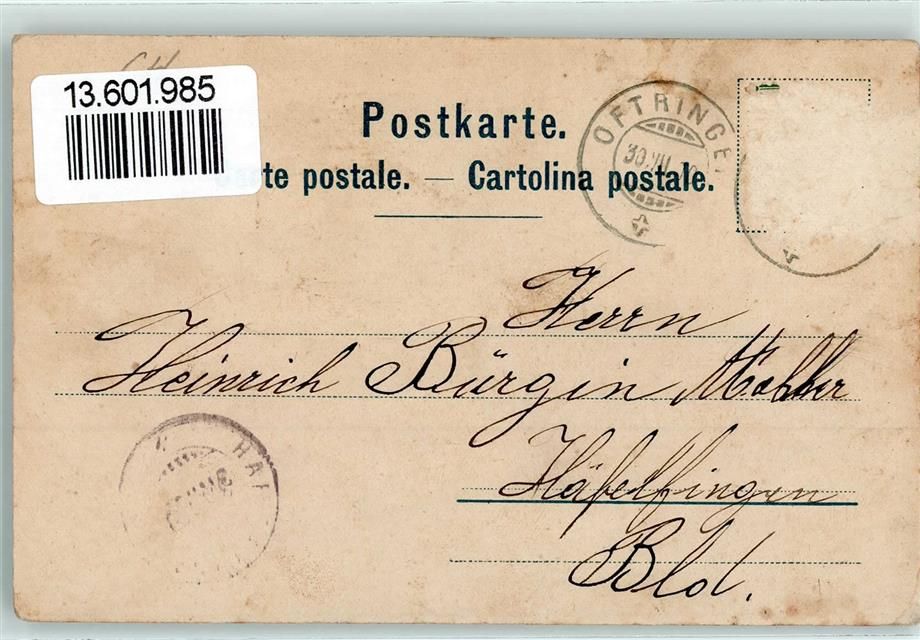 CH
13.601.985
Postkarte.
te postale. — Cartolina postale.
OFTRINGE
30.VII
Herrn
Heinrich Bürgin Mohler
Häfelfingen
Bld.